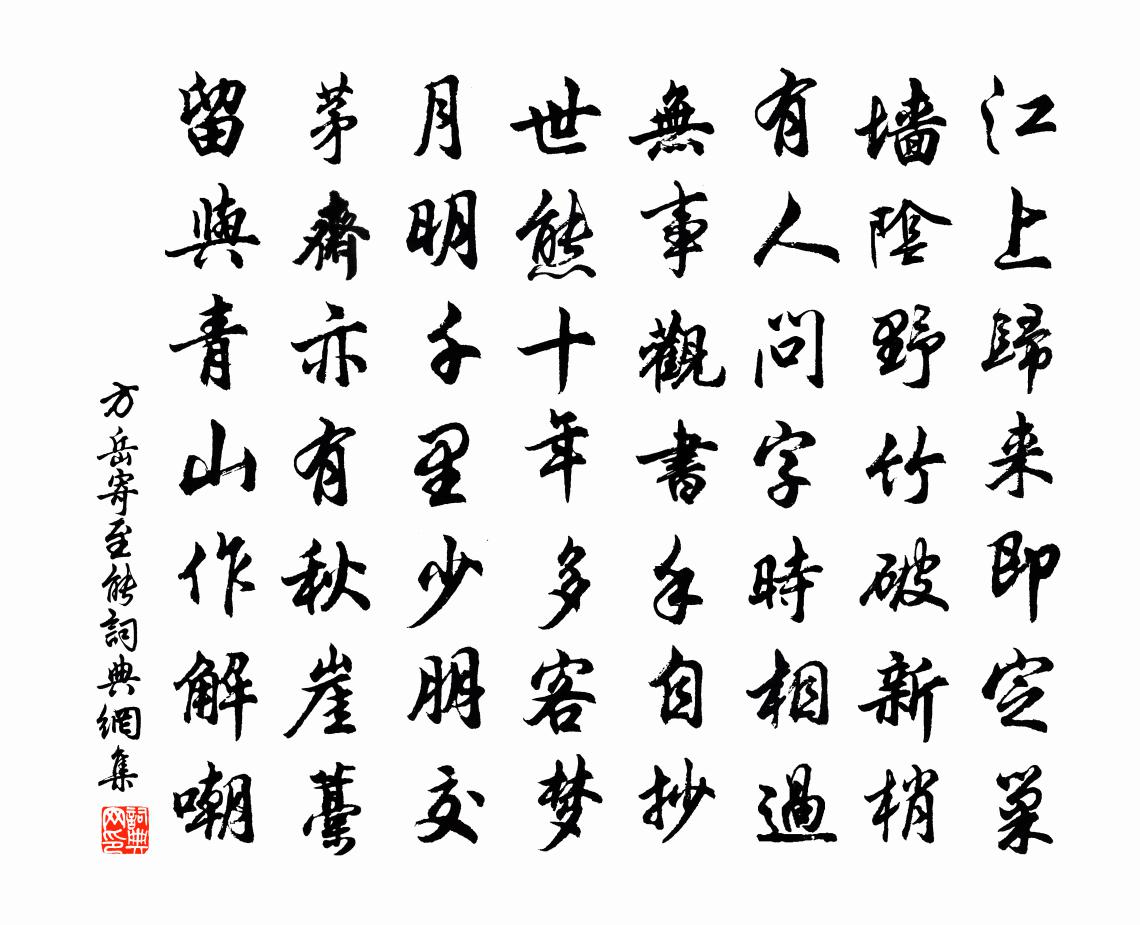 江上歸来即定巢
墻陰野竹破新梢
有人問字時相過
無事觀書手自抄
世態十年多客梦
月明千里少朋交
茅齋亦有秋崖藁
留與青山作解嘲
方岳寄至能詞典網集
詞典网印